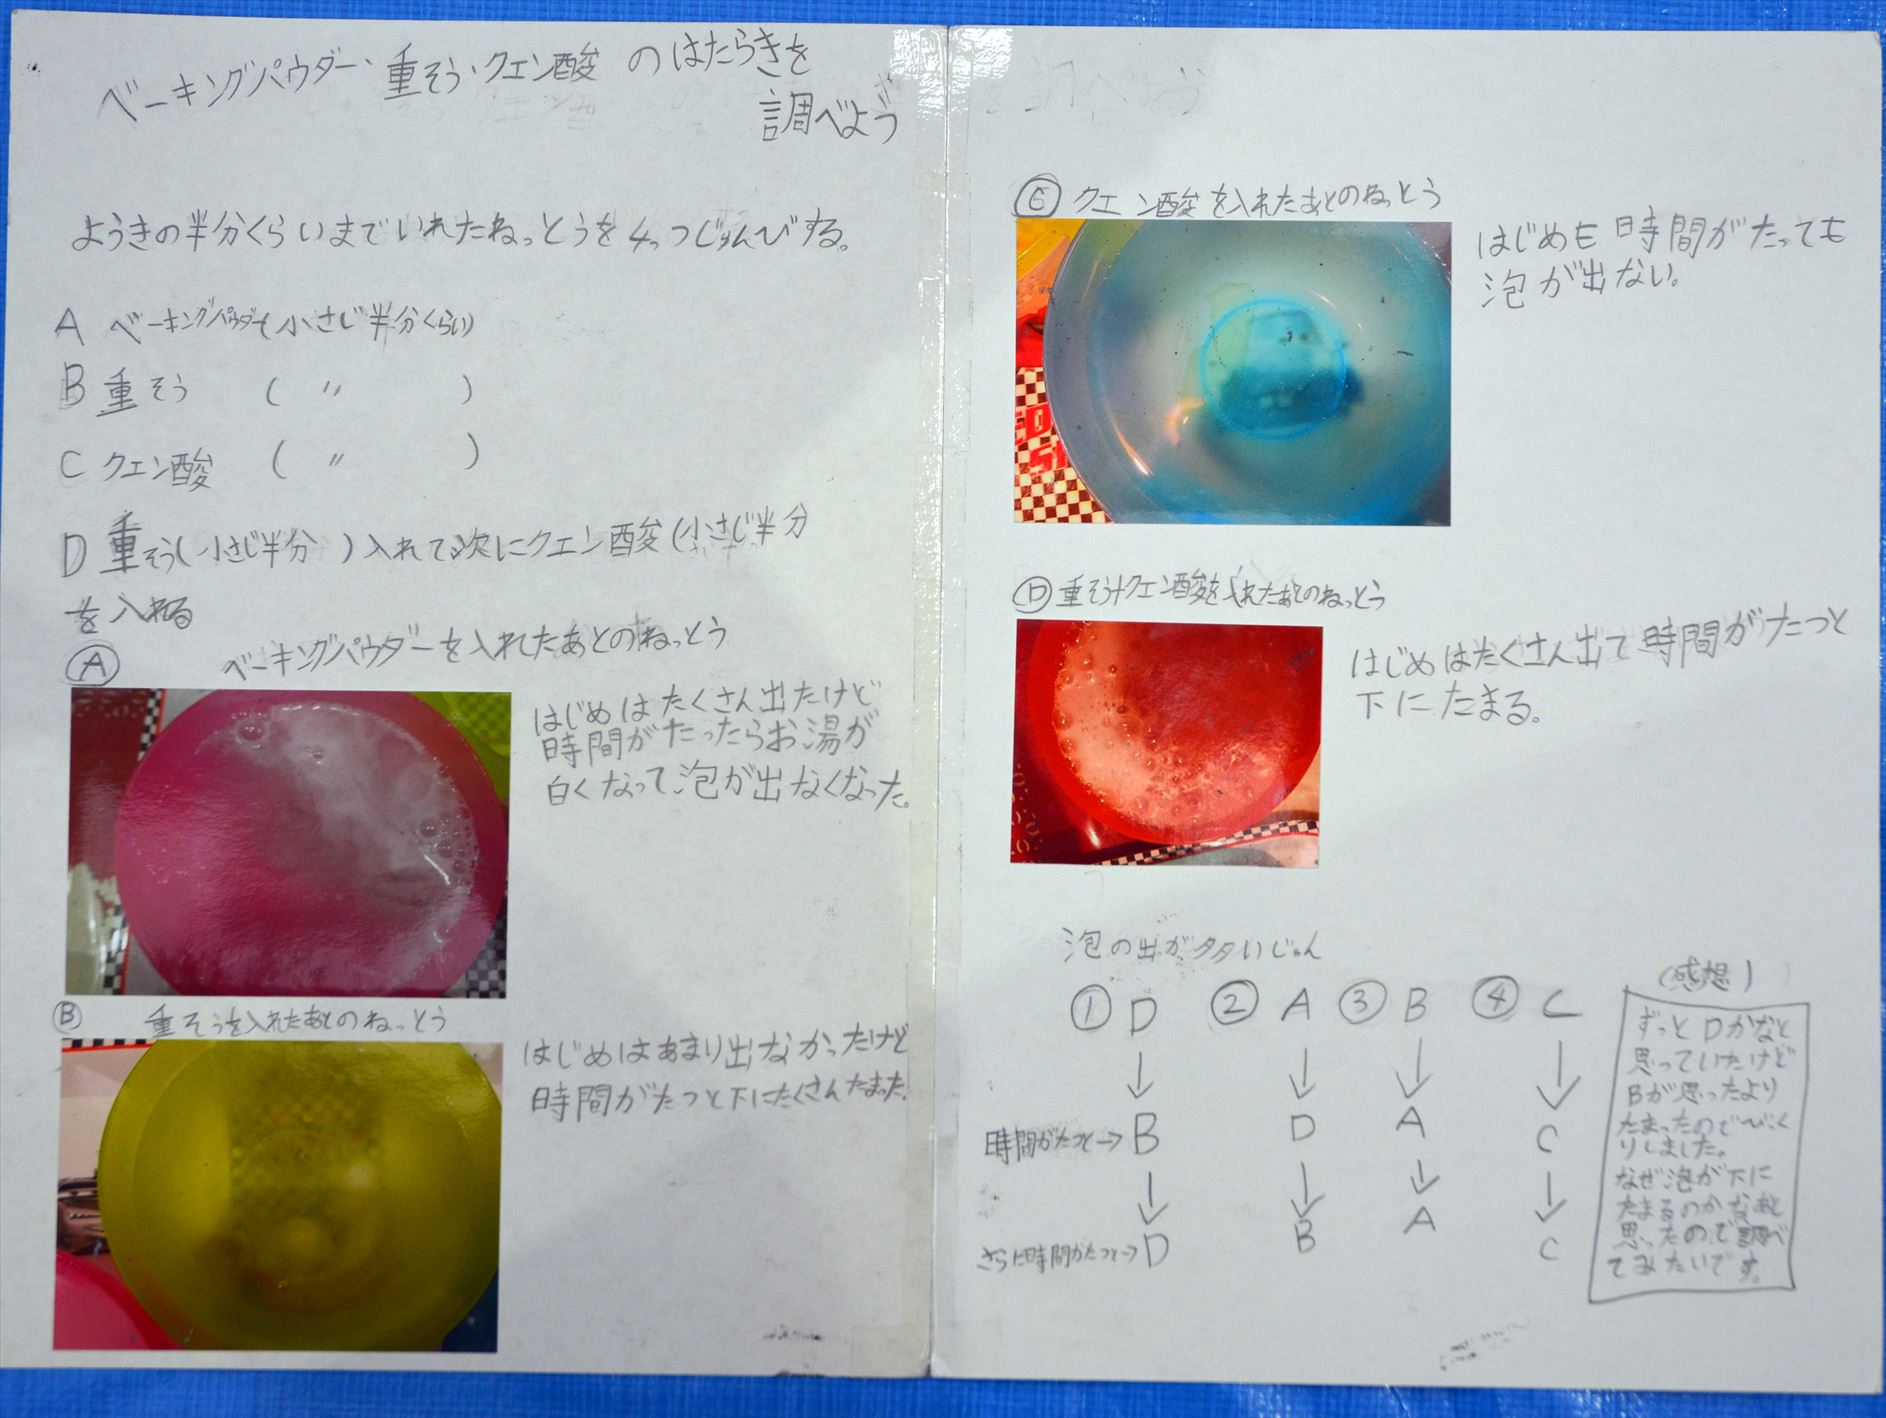 ベーキングパウダー・重そう・クエン酸のはたらきを
調べよう
ようきの半分くらいまでいれたねっとうを4つじゅんびする。
A ベーキングパウダー(小さじ半分くらい)
B 重そう ( 〃 )
C クエン酸 ( 〃 )
D 重そう(小さじ半分 )入れて次にクエン酸(小さじ半分
を入れる
Ⓐ ベーキングパウダーを入れたあとのねっとう
はじめはたくさん出たけど
時間がたったらお湯が
白くなって、泡が出なくなった。
Ⓑ 重そうを入れたあとのねっとう
はじめはあまり出なかったけど
時間がたつと下にたくさんたまった。
Ⓒ クエン酸を入れたあとのねっとう
はじめも時間がたっても
泡が出ない。
Ⓓ 重そう+クエン酸を入れたあとのねっとう
はじめはたくさん出て時間がたつと
下にたまる。
泡の出が多いじゅん
① D ② A ③ B ④ C
↓ ↓ ↓ ↓
時間がたつと→ B D A C
↓ ↓ ↓ ↓
さらに時間がたつと→ D B A C
(感想)
ずっとDかなと
思っていたけど
Bが思ったより
たまったのでびっく
りしました。
なぜ泡が下に
たまるのかなあと
思ったので調べ
てみたいです。